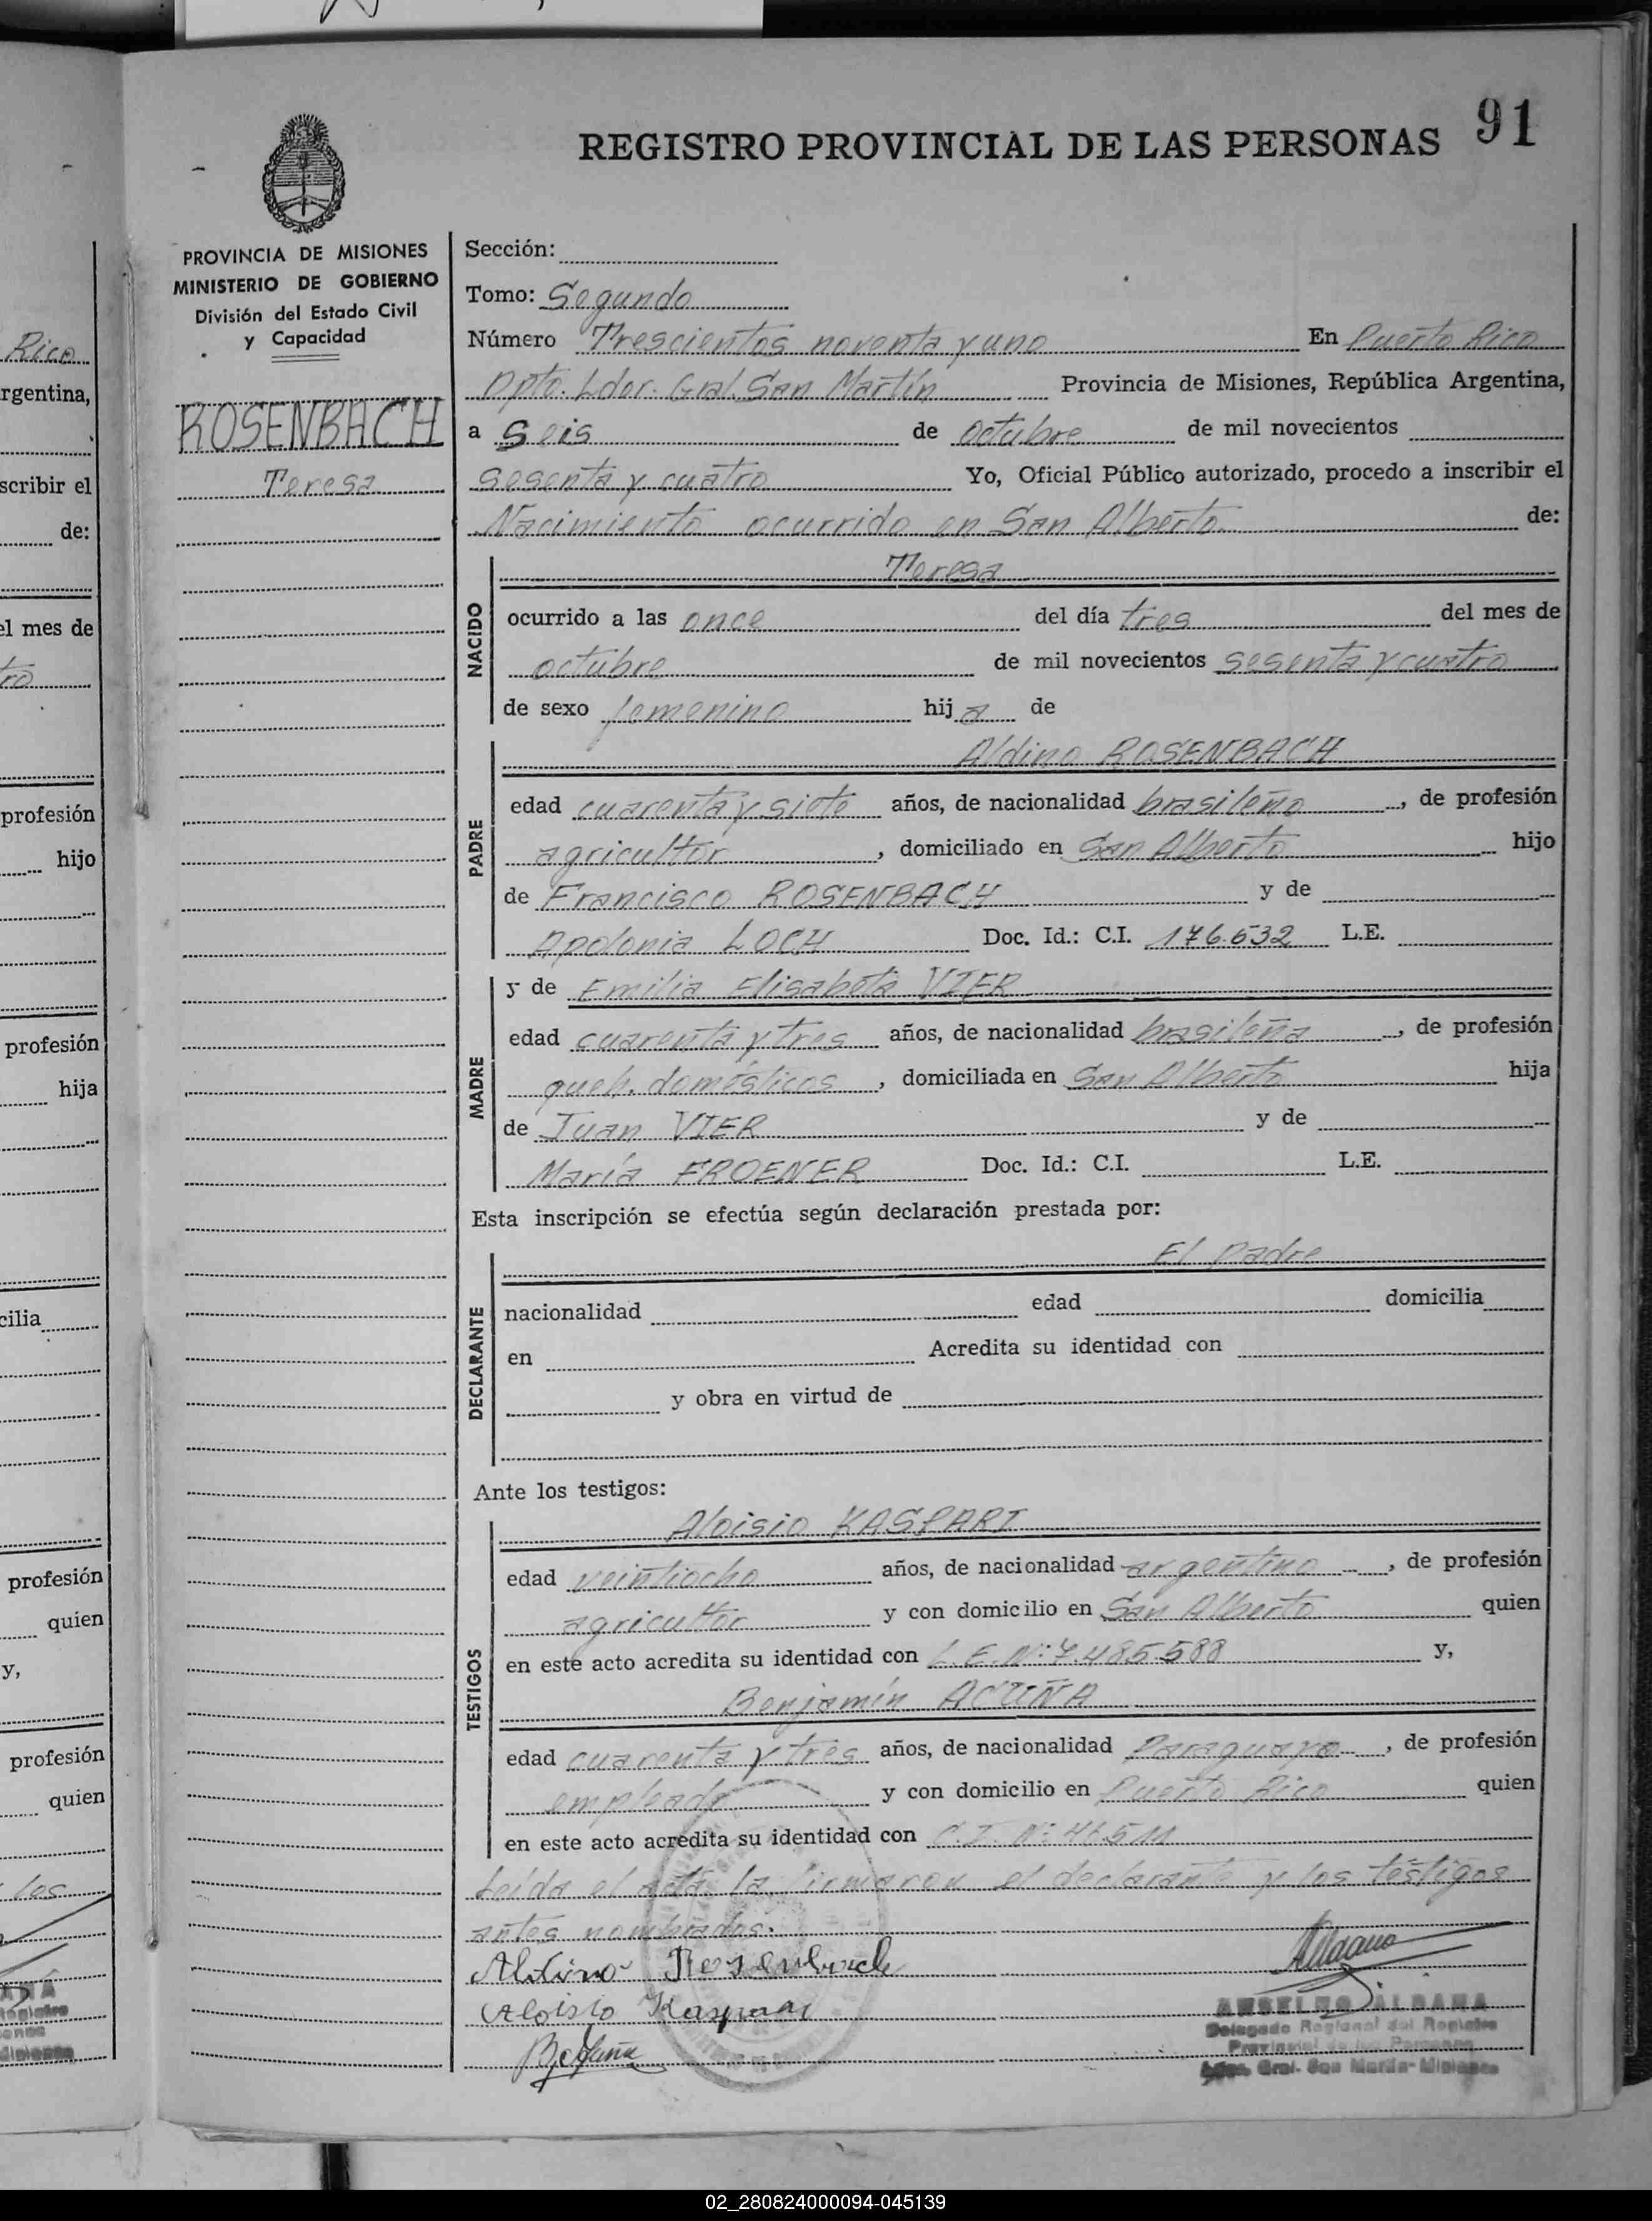 REGISTRO PROVINCIAL DE LAS PERSONAS 91
PROVINCIA DE MISIONES
MINISTERIO DE GOBIERNO
División del Estado Civil
y Capacidad
ROSENBACH
Teresa
Sección:
Tomo: Segundo
Número Trescientos noventa y uno En Puerto Rico
Dpto. Ldor. Gral. San Martín Provincia de Misiones, República Argentina,
a Seis de octubre de mil novecientos
sesenta y cuatro Yo, Oficial Público autorizado, procedo a inscribir el
Nacimiento ocurrido en San Alberto de:
NACIDO
Teresa
ocurrido a las once del día tres del mes de
octubre de mil novecientos sesenta y cuatro
de sexo femenino hija de
PADRE
Aldino ROSENBACH
edad cuarenta y siete años, de nacionalidad brasileño, de profesión
agricultor, domiciliado en San Alberto hijo
de Francisco ROSENBACH y de
Apolonia LOCH Doc. Id.: C.I. 176.632 L.E.
MADRE
y de Emilia Elisabeta VIER
edad cuarenta y tres años, de nacionalidad brasileña, de profesión
queh. domésticos, domiciliada en San Alberto hija
de Juan VIER y de
María FROENER Doc. Id.: C.I. L.E.
Esta inscripción se efectúa según declaración prestada por:
DECLARANTE
El padre
nacionalidad edad domicilia
en Acredita su identidad con
y obra en virtud de
Ante los testigos:
TESTIGOS
Aloisio KASPARI
edad veintiocho años, de nacionalidad argentino, de profesión
agricultor y con domicilio en San Alberto quien
en este acto acredita su identidad con L.E. Nº: 7.485.588 y,
Benjamín ACUÑA
edad cuarenta y tres años, de nacionalidad Paraguayo, de profesión
empleado y con domicilio en Puerto Rico quien
en este acto acredita su identidad con C.I. Nº: 46.511
Leída el acta, la firmaron el declarante y los testigos
antes nombrados.
Aldino Rosenbach
Aloisio Kaspari
ANSELMO ALDANA
Delegado Regional del Registro
Provincial de las Personas
Ldor. Gral. San Martín - Misiones
Rico
rgentina,
scribir el
de:
el mes de
profesión
hijo
profesión
hija
cilia
profesión
quien
y,
profesión
quien
los
02_280824000094-045139